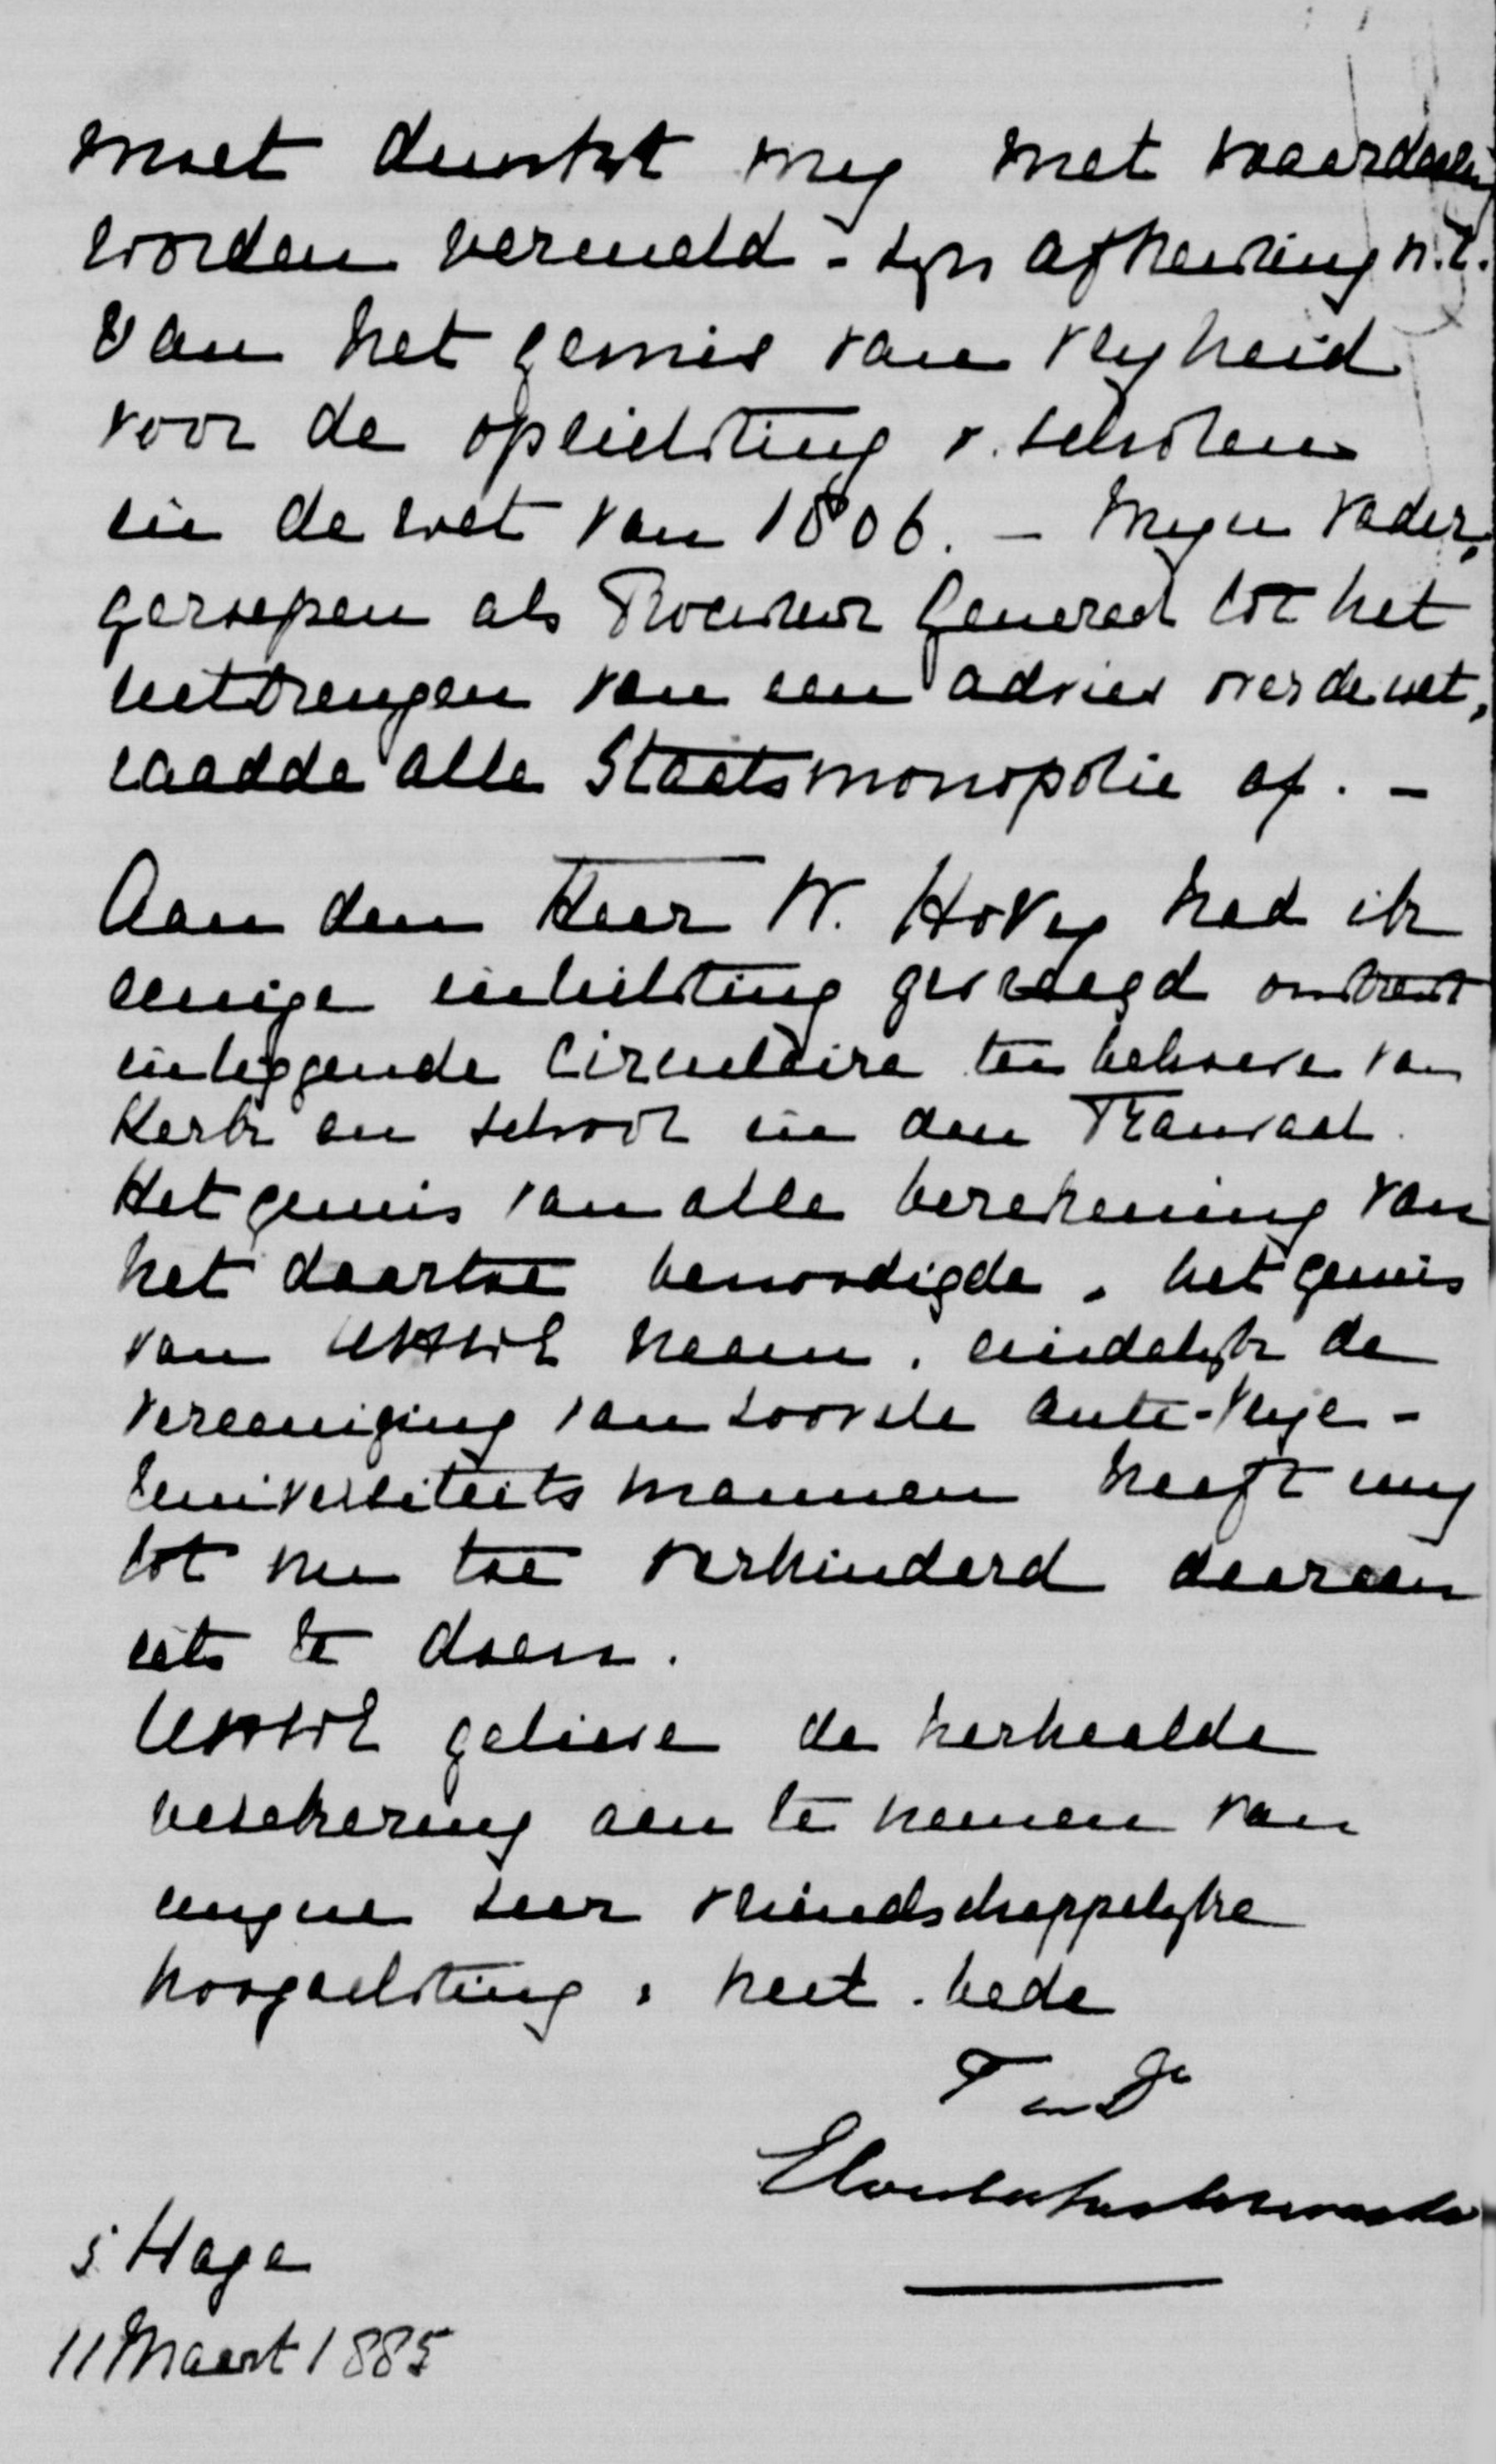 moet dunkt my met waardering
worden vermeld - zyn afkeuring n.l.
van het gemis van vryheid
voor de oprichting v. scholen
in de wet van 1806. - Myn vader,
geroepen als Procureur Generaal tot het
uitbrengen van een advies over de wet,
raadde alle Staatsmonopolie af. -
Aan den Heer W. Hovy had ik
eenige inlichting gevraagd omtrent
inleggende Circulaire ten behoeve van
Kerk en school in den Transvaal.
Het gemis van alle berekening van
het daartoe benoodigde, het gemis
van UHWG naam, eindelyk de
vereeniging van zoovele anti-Vrye-
Universiteits mannen heeft my
tot nu toe verhinderd daaraan
iets te doen.
UHWG gelieve de herhaalde
verzekering aan te nemen van
myne zeer vriendschappelyke
hoogachting, heil. bede
T en Dr
Elout v Soeterwoude
s Hage
11 Maart 1885